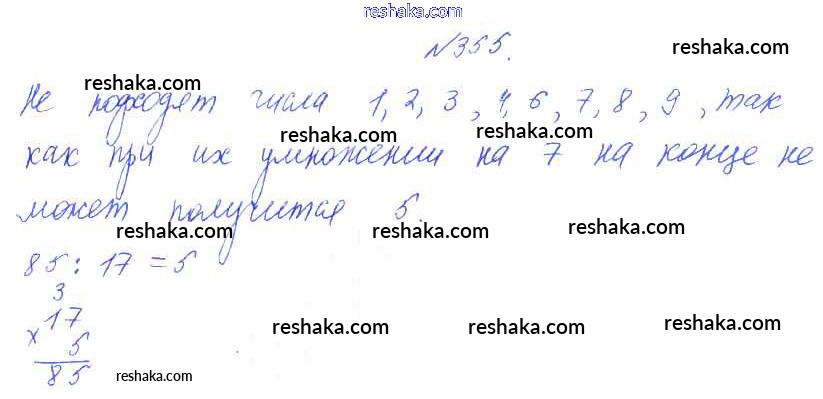 reshaka.com
№355.
reshaka.com
Не подходят числа 1, 2, 3, 4, 6, 7, 8, 9, так
reshaka.com
как при их умножении на 7 на конце не
reshaka.com reshaka.com
может получится 5.
reshaka.com reshaka.com reshaka.com
85 : 17 = 5
3
× 17
5
85
reshaka.com reshaka.com reshaka.com